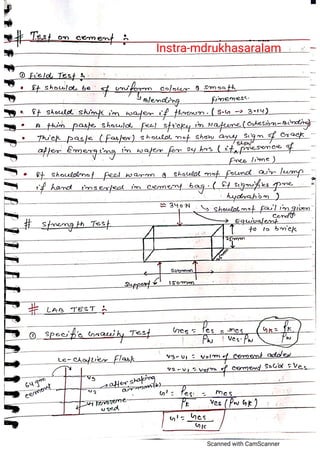 # Test on cement :-
Instra-mdrukhasaralam
① Field Test :-
• It should be of uniform colour & smooth
Blending fineness.
• It should shink in water if thrown. (5.4 → 3.14)
• A thin paste should feel sticky in nature (Cohesion-Binding)
• Thick paste (Paster) should not show any sign of crack
after Emmerging in water for 24 hrs ( it show presence of
free lime )
• It should not feel warm & should not found air lump
if hand inserted in cement bag. ( It signifies pre
hydration )
340N
↳ should not fail in given
condn
# Strength Test
Equivalent
to 10 brick
25mm
500mm
Support
150mm
# LAB TEST :-
① Specific Gravity Test
Le-Chatlier Flask
64 gm
cement
after shaking
air mano(s)
V3
V2
V1 kerosene
used
V3-V1 = volm of cement added
V2-V1 = volm of cement solid = Ves
Scanned with CamScanner